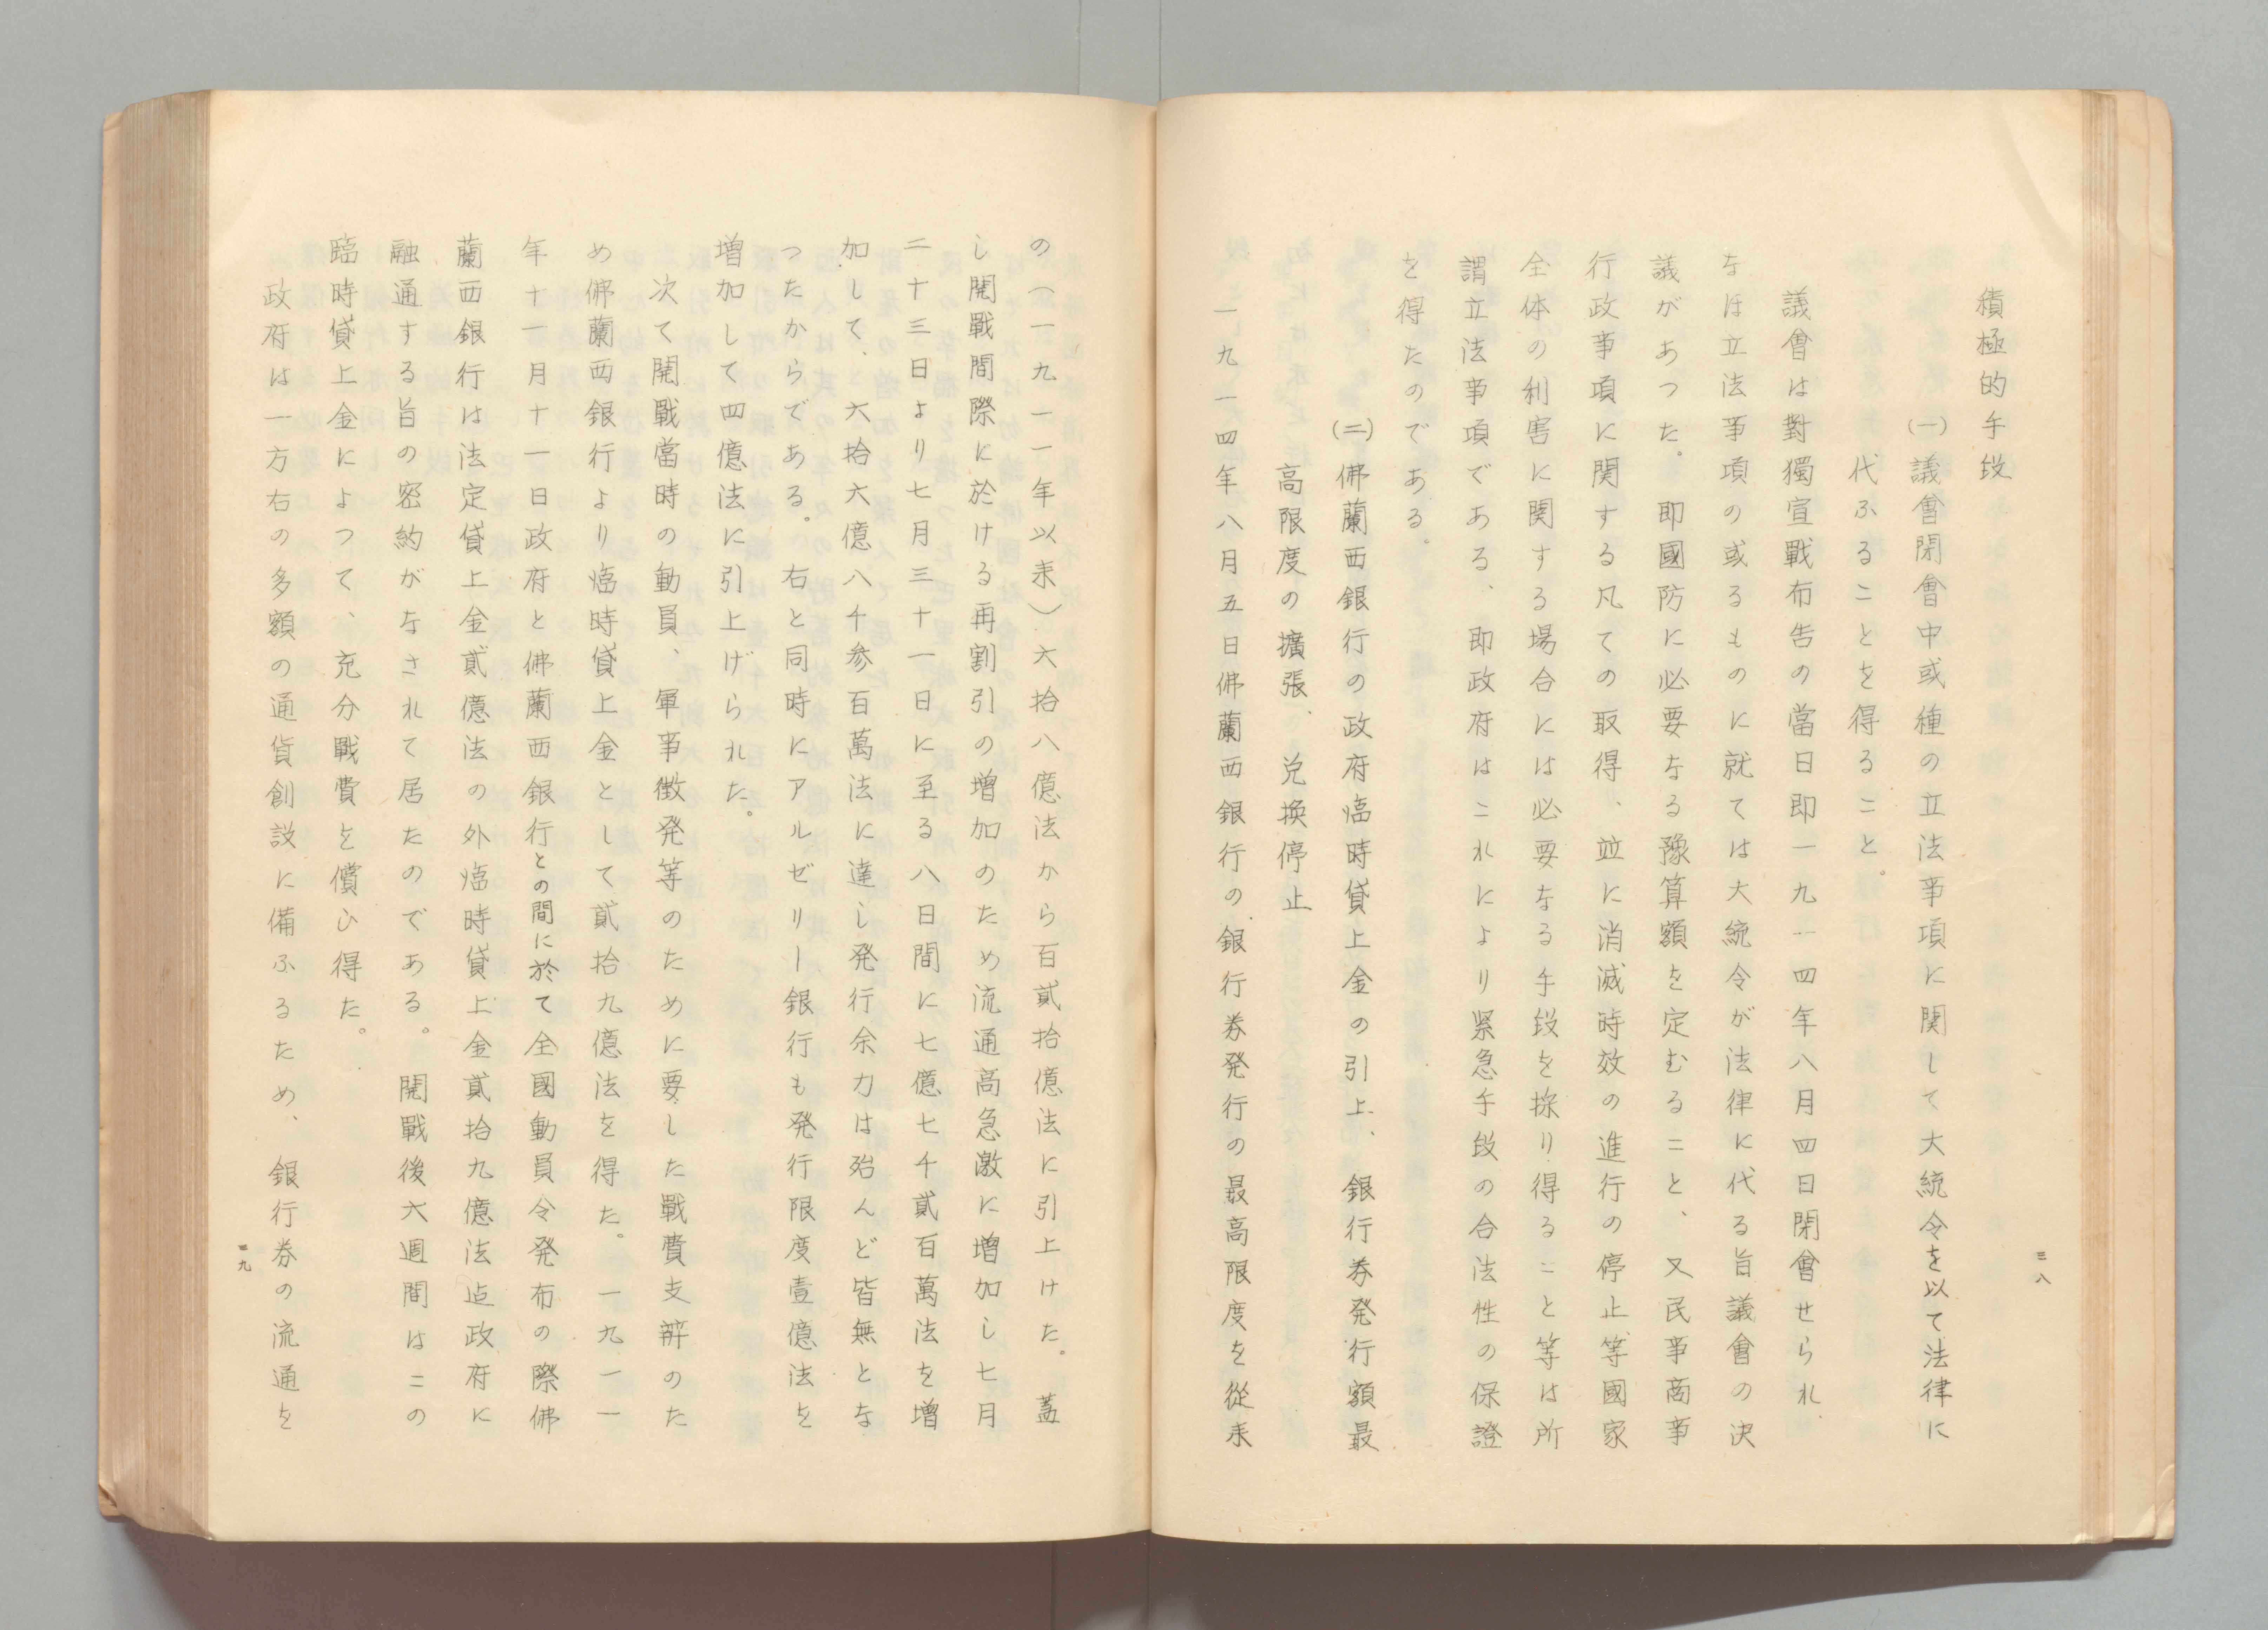 三八
積極的手段
(一)議會閉會中或種の立法事項に関して大統令を以て法律に
代ふることを得ること。
議會は對獨宣戰布告の當日即一九一四年八月四日閉會せられ
なほ立法事項の或るものに就ては大統令が法律に代る旨議會の決
議があつた。即國防に必要なる豫算額を定むること、又民事商事
行政事項に関する凡ての取得、並に消滅時效の進行の停止等國家
全体の利害に関する場合には必要なる手段を採り得ること等は所
謂立法事項である、即政府はこれにより緊急手段の合法性の保證
を得たのである。
(二)佛蘭西銀行の政府臨時貸上金の引上、銀行券発行額最
高限度の擴張、兌換停止
一九一四年八月五日佛蘭西銀行の銀行券発行の最高限度を從来
の(一九一一年以来)六拾八億法から百貳拾億法に引上けた。蓋
し開戰間際に於ける再割引の増加のため流通高急激に増加し七月
二十三日より七月三十一日に至る八日間に七億七千貳百萬法を増
加して、六拾六億八千参百萬法に達し発行余力は殆んど皆無とな
つたからである。右と同時にアルゼリー銀行も発行限度壹億法を
増加して四億法に引上げられた。
次て開戰當時の動員、軍事徴発等のために要した戰費支辨のた
め佛蘭西銀行より臨時貸上金として貳拾九億法を得た。一九一一
年十一月十一日政府と佛蘭西銀行との間に於て全國動員令発布の際佛
蘭西銀行は法定貸上金貳億法の外臨時貸上金貳拾九億法迠政府に
融通する旨の密約がなされて居たのである。開戰後六週間はこの
臨時貸上金によつて、充分戰費を償ひ得た。
政府は一方右の多額の通貨創設に備ふるため、銀行券の流通を
三九